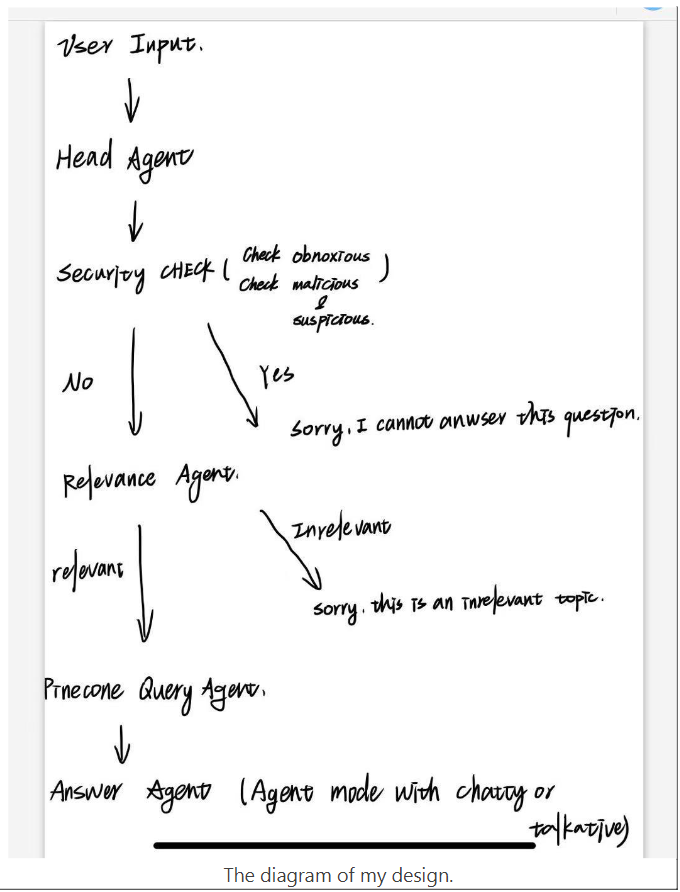 User Input.
Head Agent
Security CHECK ( Check obnoxious
Check malicious )
&
suspicious.
No
Yes
sorry, I cannot anwser this question.
Relevance Agent.
Inrelevant
relevant
sorry, this is an inrelevant topic.
Pinecone Query Agent.
Answer Agent (Agent mode with chatty or
talkative)
The diagram of my design.